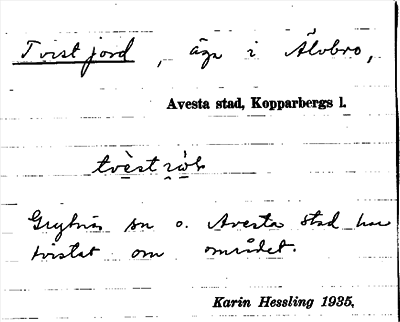 Tvistjord, äga i Älvbro,
Avesta stad, Kopparbergs l.
Grytnäs sn o. Avesta stad har
tvistat om området.
Karin Hessling 1935,